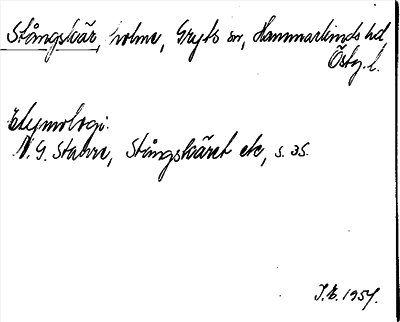 Stångskär, holme, Gryts sn, Hammarkinds hd
Östg. l.
Etymologi:
N. G. Stahre, Stångskäret etc, s. 35.
1957.